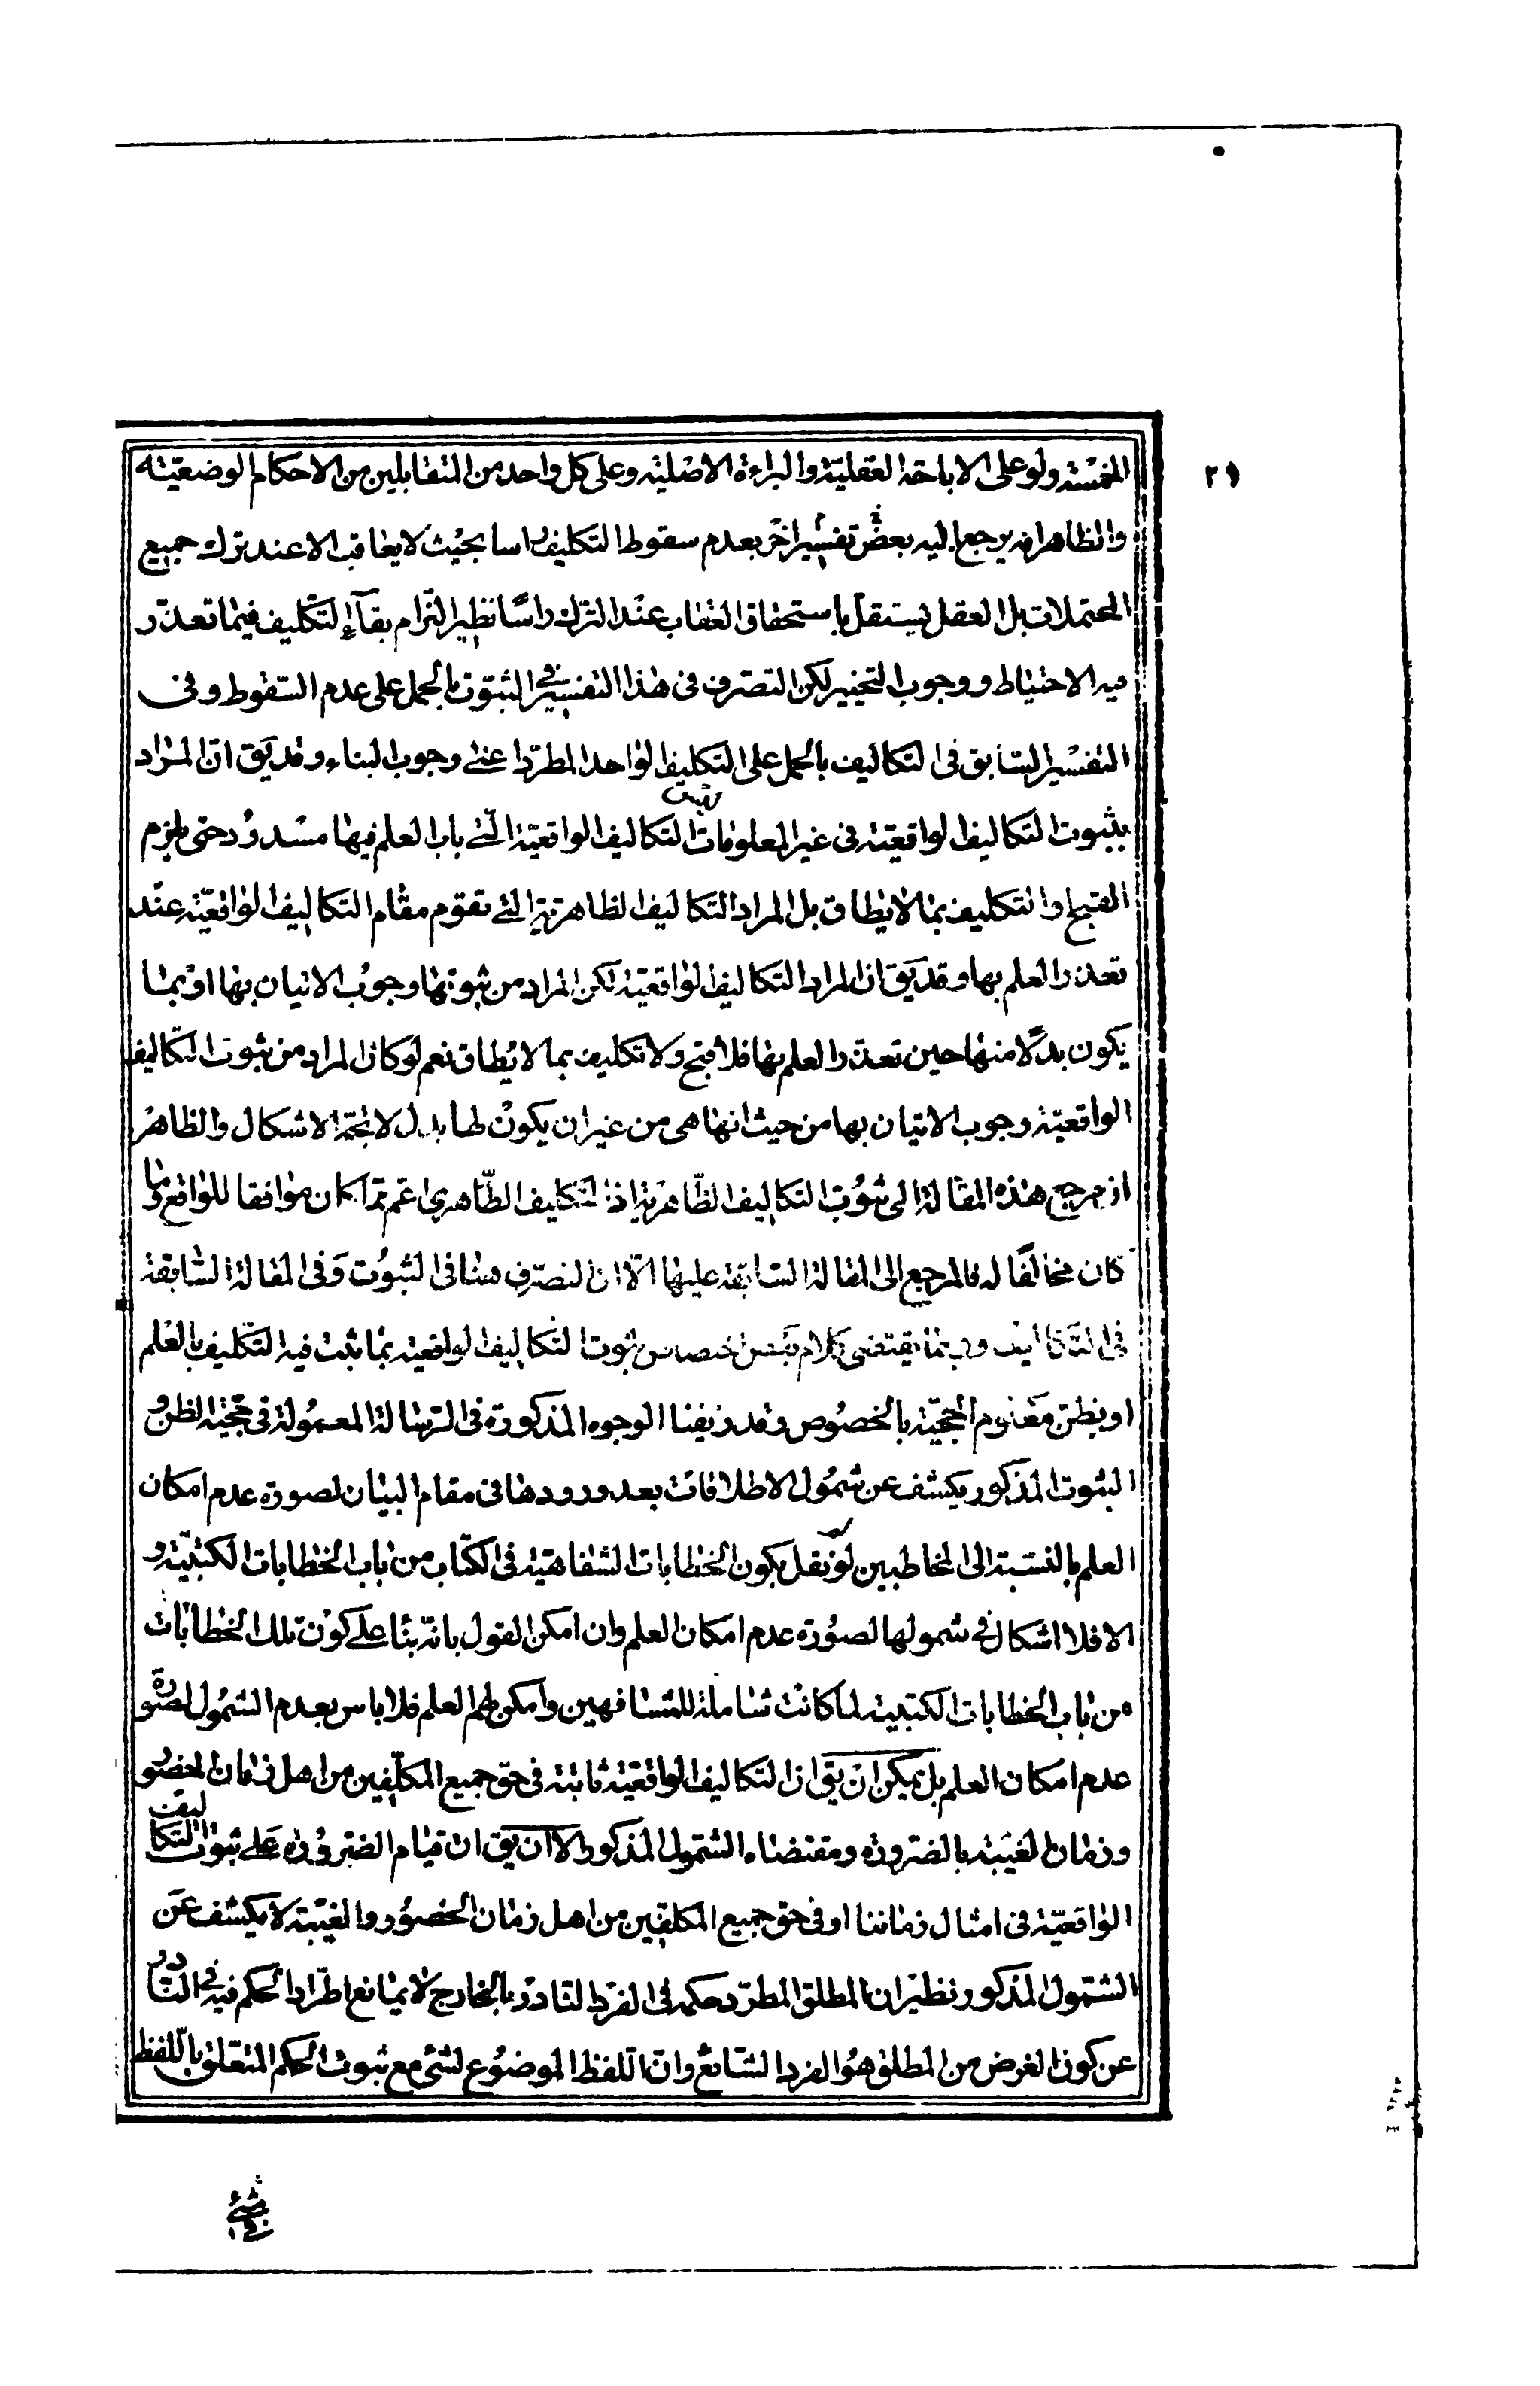 الخمسة ولو على الاباحة العقليّة والبراءة الاصليّة وعلى كل واحد من المتقابلين من الاحكام الوضعيّة
والظاهر انه يرجع اليه بعض تفسير اخر بعدم سقوط التكليف راسا بحيث لا يعاقب الا عند ترك جميع
المحتملات بل العقل يستقل باستحقاق العقاب عند الترك راسًا نظير التزام بقآء التكليف فيما تعذّر
فيه الاحتياط ووجوب التخيير لكن التصرف في هذا التفسير في الثبوت بالحمل على عدم السّقوط وفى
التفسير السّابق فى التكاليف بالحمل على التكليف الواحد المطرد اعنى وجوب البناء وقد يق انّ المراد
بثبوت التكاليف الواقعيّة فى غير المعلومات ليس التكاليف الواقعيّة الّتى باب العلم فيها مسدود حتى يلزم
القبح والتكليف بما لا يطاق بل المراد التكاليف الظاهريّة التى تقوم مقام التكاليف الواقعيّة عند
تعذر العلم بها وقد يق ان المراد التكاليف الواقعيّة لكن المراد من ثبوتها وجوب الاتيان بها او بما
يكون بدلًا منها حين تعذر العلم بها فلا قبح ولا تكليف بما لا يطاق نعم لو كان المراد من ثبوت التكاليف
الواقعيّة وجوب الاتيان بها من حيث انها هى من غير ان يكون لها بدل لاتجه الاشكال والظاهر
ان مرجع هذه المقالة الى ثبوت التكاليف الظاهريّة اذ التكليف الظّاهرى اعم ممّا كان موافقا للواقع وما
كان مخالفًا له فالمرجع الى المقالة السّابقة عليها الّا ان التصرّف هنا فى الثبوت وفى المقالة السّابقة
فى التكاليف وربما يقتضى كلام بعض اختصاص ثبوت التكاليف الواقعيّة بما ثبت فيه التكليف بالعلم
او بظن معلوم الحجيّة بالخصوص وقد زيفنا الوجوه المذكورة فى الرسالة المعمولة فى حجية الظن و
الثبوت المذكور يكشف عن شمول الاطلاقات بعد ورودها فى مقام البيان لصورة عدم امكان
العلم بالنسبة الى المخاطبين لو نقل بكون الخطابات الشفاهيّة فى الكتاب من باب الخطابات الكتبيّة و
الا فلا اشكال فى شمولها لصورة عدم امكان العلم وان امكن القول بانّه بناء على كون تلك الخطابات
من باب الخطابات الكتبيّة لما كانت شاملة للمشافهين وامكن لهم العلم فلا باس بعدم الشمول لصورة
عدم امكان العلم بل يمكن ان يق ان التكاليف الواقعيّة ثابتة فى حق جميع المكلّفين من اهل زمان الحضور
وزمان الغيبة بالضرورة ومقتضاه الشمول المذكور الا ان يق ان قيام الضرورة على ثبوت التكاليف
الواقعيّة فى امثال زماننا او فى حق جميع المكلفين من اهل زمان الحضور والغيبة لا يكشف عن
الشمول المذكور نظير ان المطلق المطرّد حكمه فى الفرد النادر بالخارج لا يمانع اطّراد الحكم فيه فى النّادر
عن كون الغرض من المطلق هو الفرد الشايع وان اللفظ الموضوع لشئ مع ثبوت الحكم المتعلق باللفظ